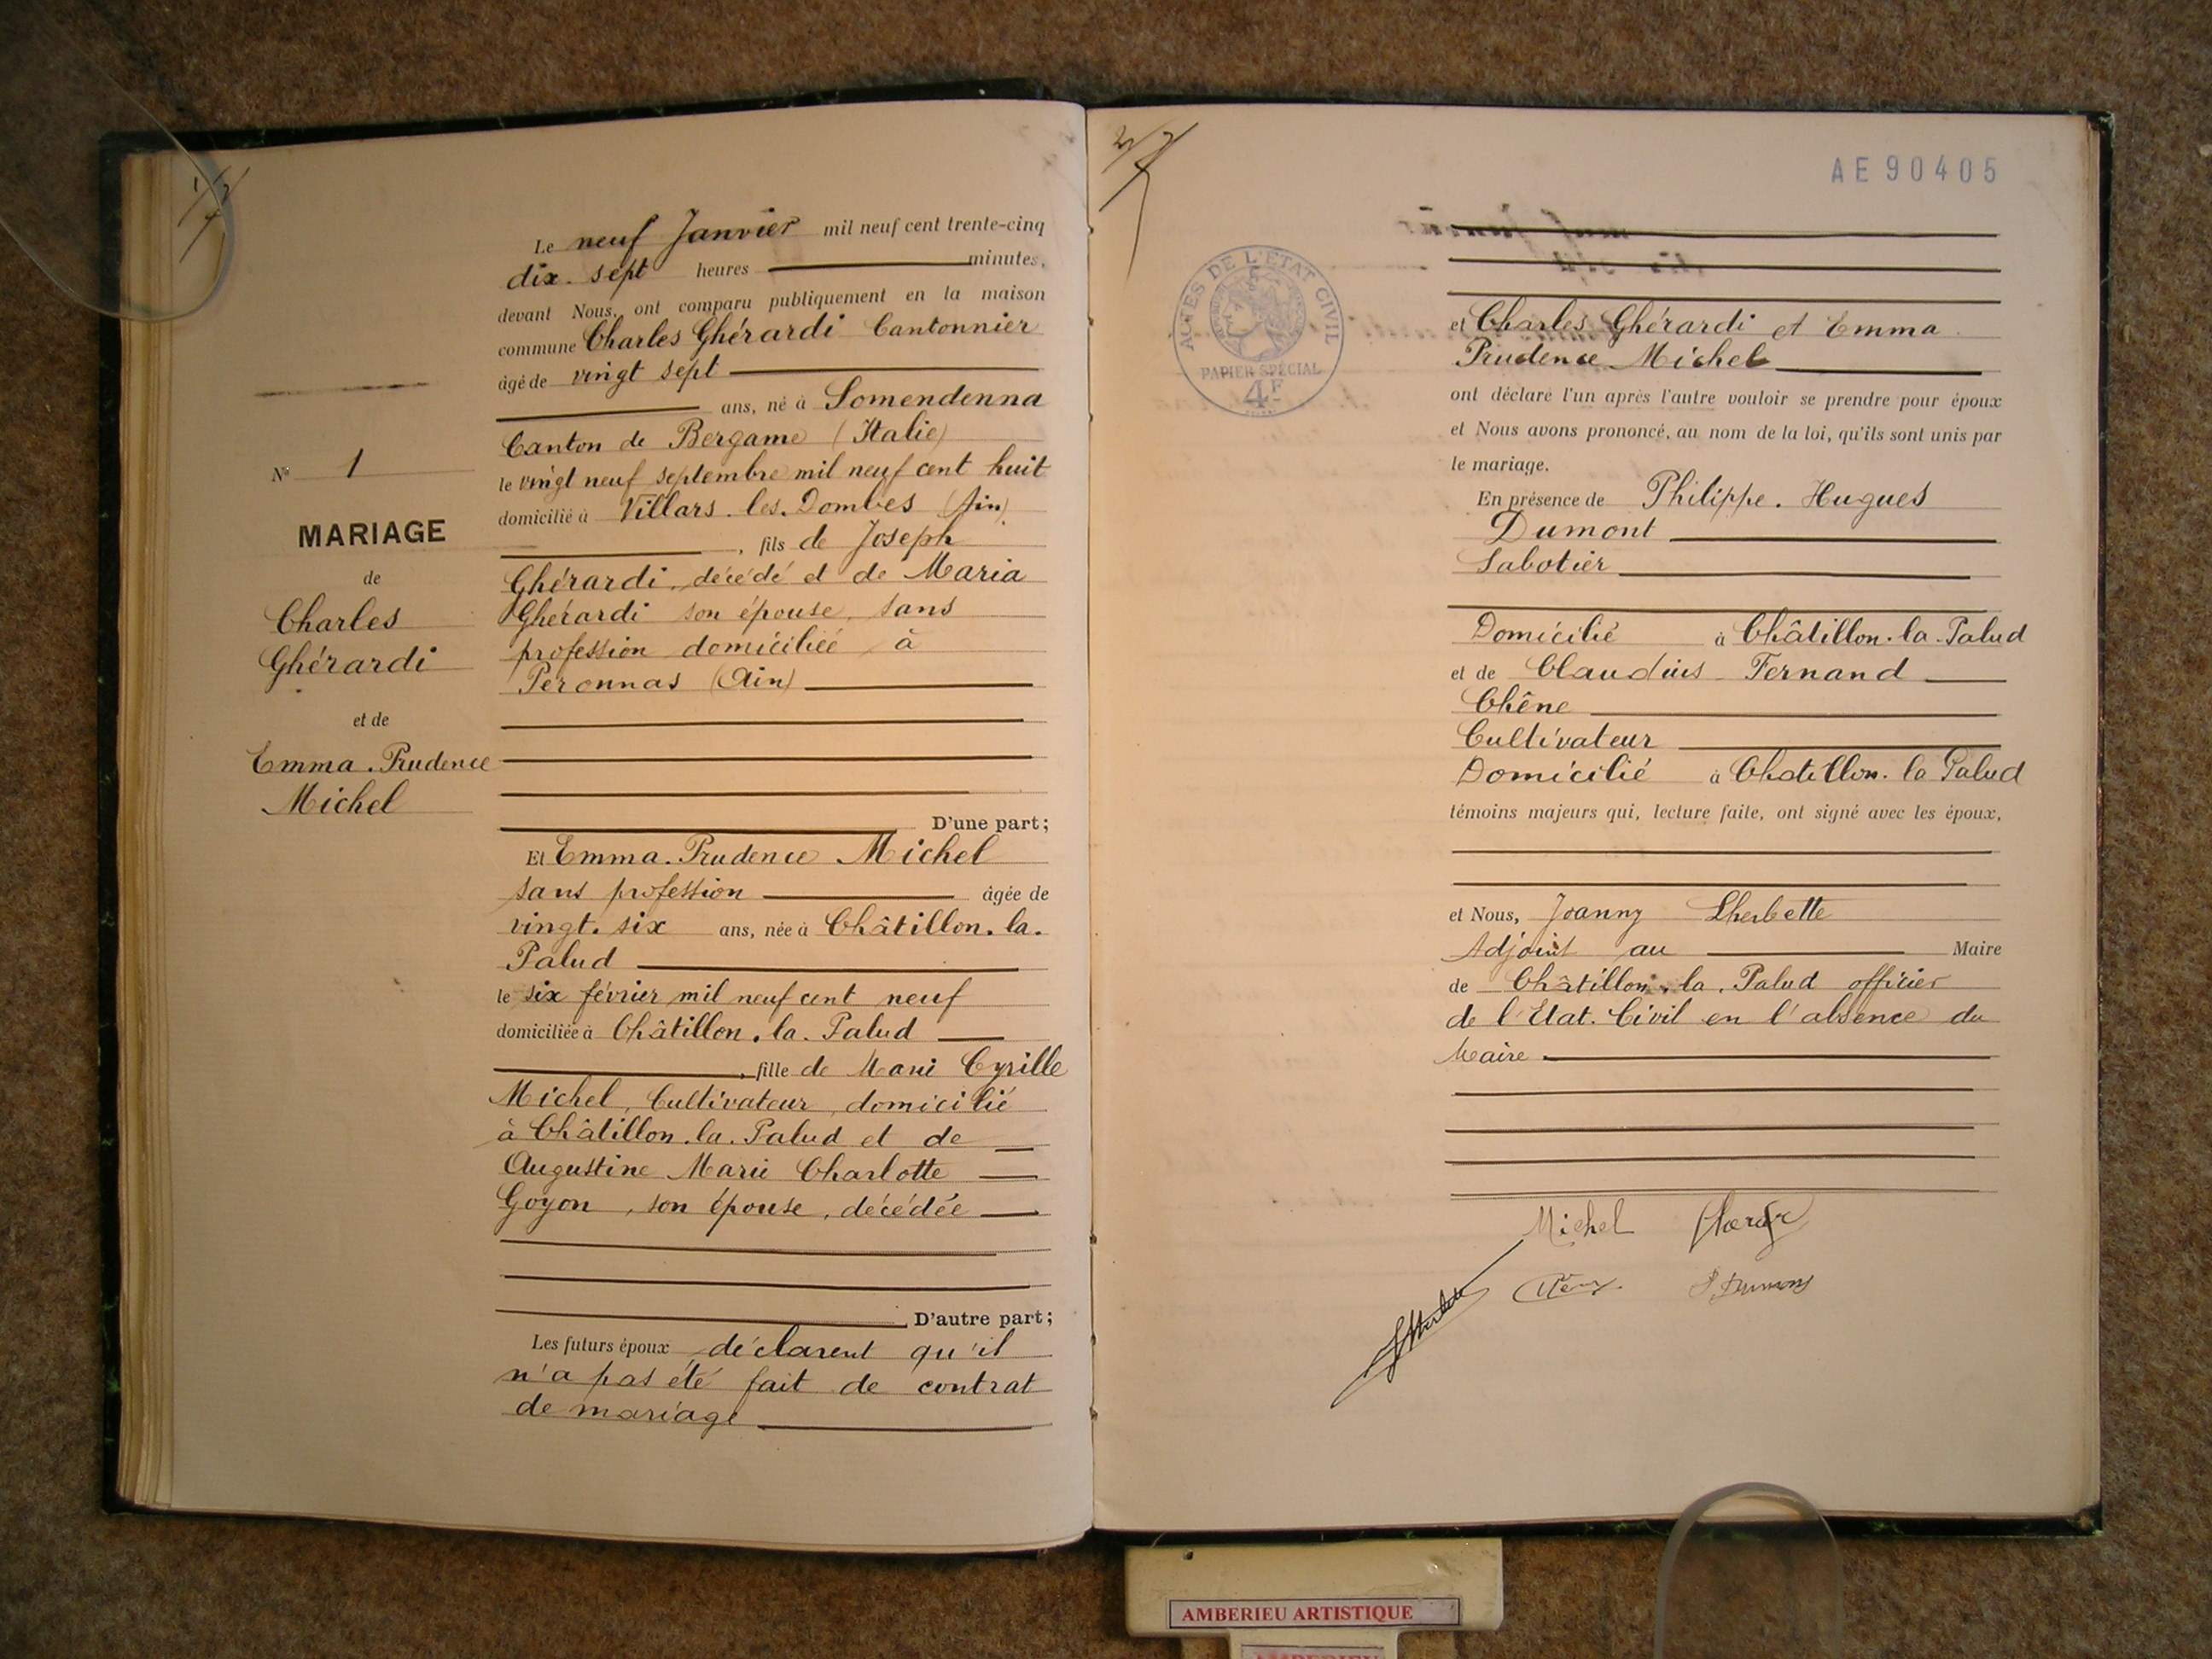 Le neuf Janvier mil neuf cent trente-cinq
dix. sept heures minutes,
devant Nous, ont comparu publiquement en la maison
commune Charles Ghérardi Cantonnier
âgé de vingt sept
ans, né à Somendenna
Canton de Bergame (Italie)
le vingt neuf septembre mil neuf cent huit
domicilié à Villars. les. Dombes (Ain)
, fils de Joseph
Ghérardi, décédé et de Maria
Ghérardi son épouse, sans
profession domiciliée à
Peronnas (Ain)
D'une part;
Et Emma. Prudence Michel
sans profession âgée de
vingt. six ans, née à Châtillon. la.
Palud
le six février mil neuf cent neuf
domiciliée à Châtillon. la. Palud
, fille de Cyrille
Michel, Cultivateur, domicilié
à Châtillon. la. Palud et de
Augustine Marie Charlotte
Goyon, son épouse, décédée
D'autre part;
Les futurs époux déclarent qu'il
n'a pas été fait de contrat
de mariage
N° 1
MARIAGE
de
Charles
Ghérardi
et de
Emma. Prudence
Michel
AE90405
ACTES DE L'ETAT CIVIL
PAPIER SPÉCIAL
4F
et Charles Ghérardi et Emma
Prudence Michel
ont déclaré l'un après l'autre vouloir se prendre pour époux
et Nous avons prononcé, au nom de la loi, qu'ils sont unis par
le mariage.
En présence de Philippe. Hugues
Dumont
Sabotier
Domicilié à Châtillon. la. Palud
et de Claudius Fernand
Chêne
Cultivateur
Domicilié à Chatillon. la Palud
témoins majeurs qui, lecture faite, ont signé avec les époux,
et Nous, Joanny Lherbette
Adjoint au Maire
de Châtillon. la. Palud officier
de l'Etat. Civil en l'absence du
Maire
Michel
AMBERIEU ARTISTIQUE
AMBERIEU